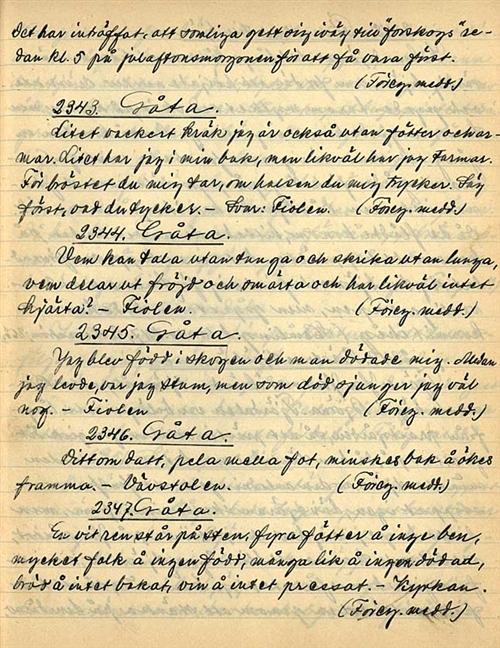 Det har inträffat, att somliga gett sig iväg till "forskogs" re-
dan kl. 5 på julaftonsmorgonen för att få vara först.
(Föreg. medd.)
2343. Gåta.
Litet vackert kräk jag är också utan fötter och ar-
mar. Litet har jag i min buk, men likväl har jag tarmar.
För bröstet du mig tar, om halsen du mig trycker. Säg
först, vad du tycker. – Svar: Fiolen. (Föreg. medd.)
2344. Gåta.
Vem kan tala utan tunga och skrika utan lunga,
vem delar ut fröjd och smärta och har likväl intet
hjärta? – Fiolen. (Föreg. medd.)
2345. Gåta.
Jag blev född i skogen och man dödade mig. Medan
jag levde, var jag stum, men som död sjunger jag väl
nog. – Fiolen (Föreg. medd.)
2346. Gåta.
Dittom datt, pela mella fot, minskes bak å ökes
framma. – Vävstolen. (Föreg. medd.)
2347. Gåta.
En vit ren står på sten, fyra fötter å inge ben,
mycket folk å ingen född, många lik å ingen dödad,
bröd å intet bakat, vin å intet pressat. – Kyrkan.
(Föreg. medd.)